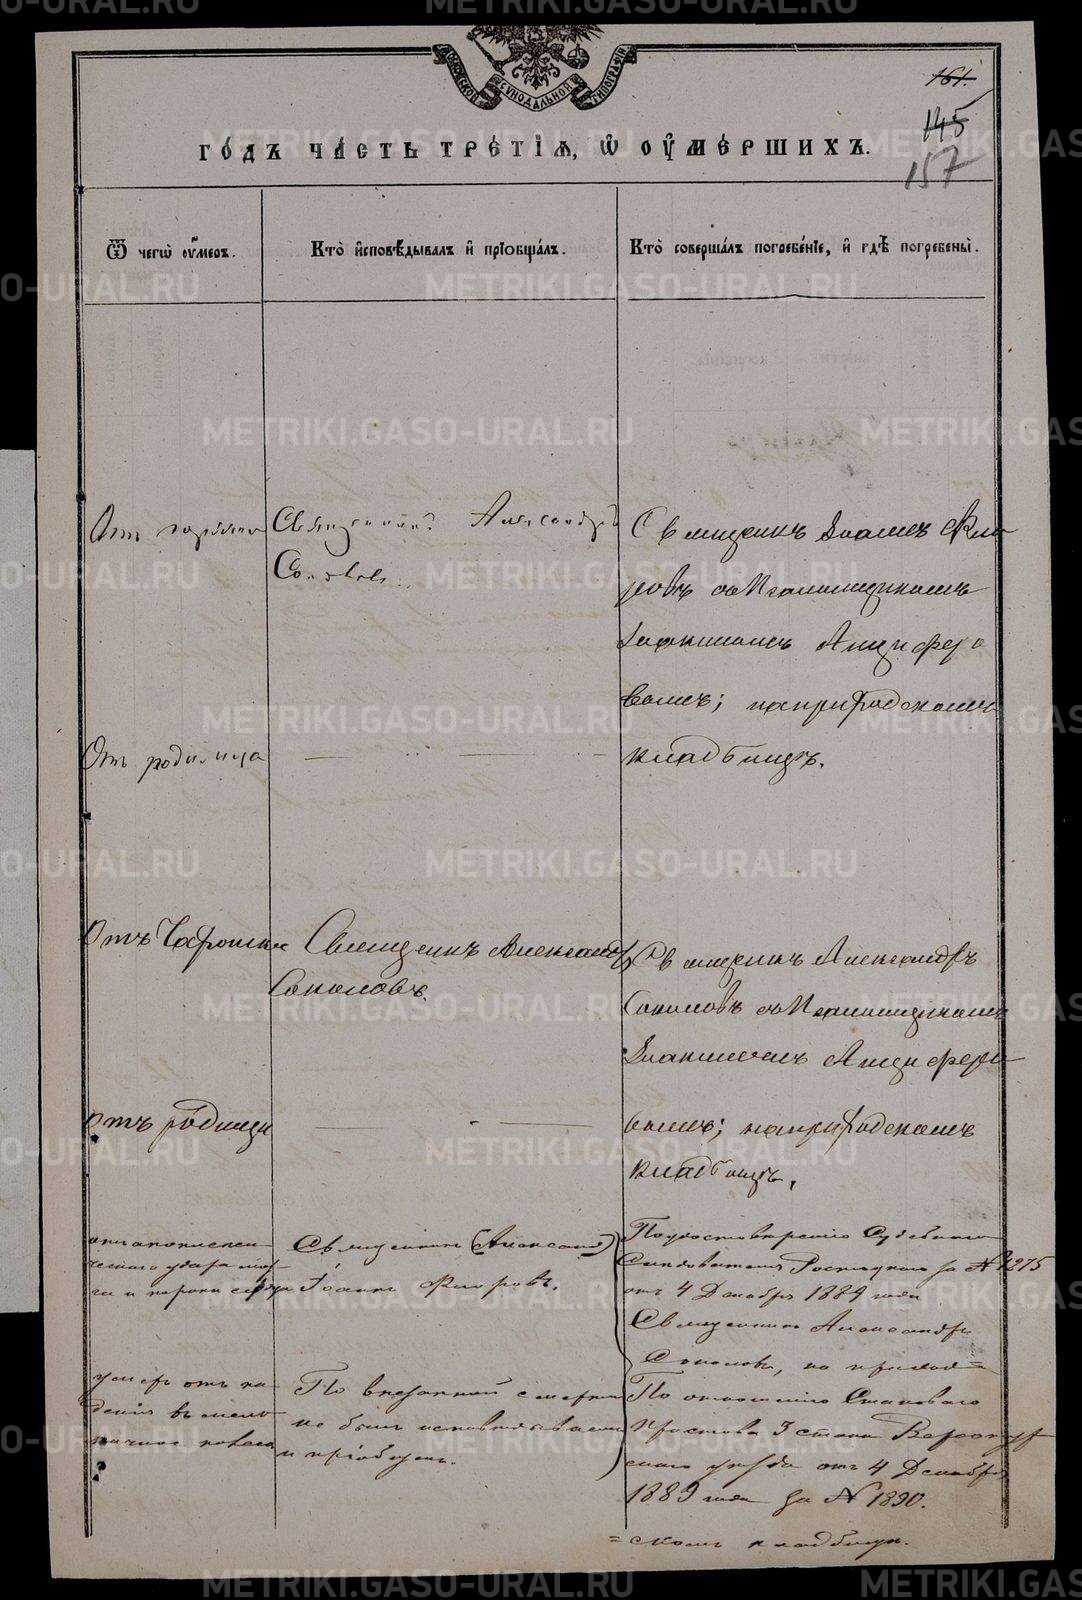 МОСКОВСКОЙ СѴНОДАЛЬНОЙ ТИПОГРАФІИ
161.
145
157
ГО́ДЪ ЧА́СТЬ ТРЕ́ТІѦ, Ѡ҆ ОУ҆МЕ́РШИХЪ.
Ѿ чегѡ̀ оу҆́меръ.
Кто̀ и҆сповѣ́дывалъ и҆ прїѡбща́лъ.
Кто̀ соверша́лъ погребе́нїе, и҆ гдѣ̀ погребены̀.
Отъ
Священникъ Александръ
Соколовъ.
Священникъ Іоаннъ Фло
ровъ съ Псаломщикомъ
Іоакимомъ Анциферо
вымъ; на приходскомъ
кладбищѣ.
Отъ родимца
Отъ Чахотки
Священникъ Александръ
Соколовъ.
Священникъ Александръ
Соколовъ съ Псаломщикомъ
Іоакимомъ Анциферо
вымъ; на приходскомъ
кладбищѣ.
Отъ родимца
отъ апоплекси
ческаго удара моз
га и порока сердца
Священникъ (Александ)
Іоаннъ Флоровъ.
По удостовѣренію Судебнаго
Слѣдователя за № 1275
отъ 4 Декабря 1889 года
Священникъ Александръ
Соколовъ, на приход=
умеръ отъ па
денія въ мель
ничное колесо
По внезапной смерти
не былъ исповѣдываемъ
и пріобщенъ.
По отношенію Становаго
Пристава 3 стана Верхотур
скаго уѣзда отъ 4 Декабря
1889 года за № 1890.
=скомъ кладбищѣ.
METRIKI.GASO-URAL.RU